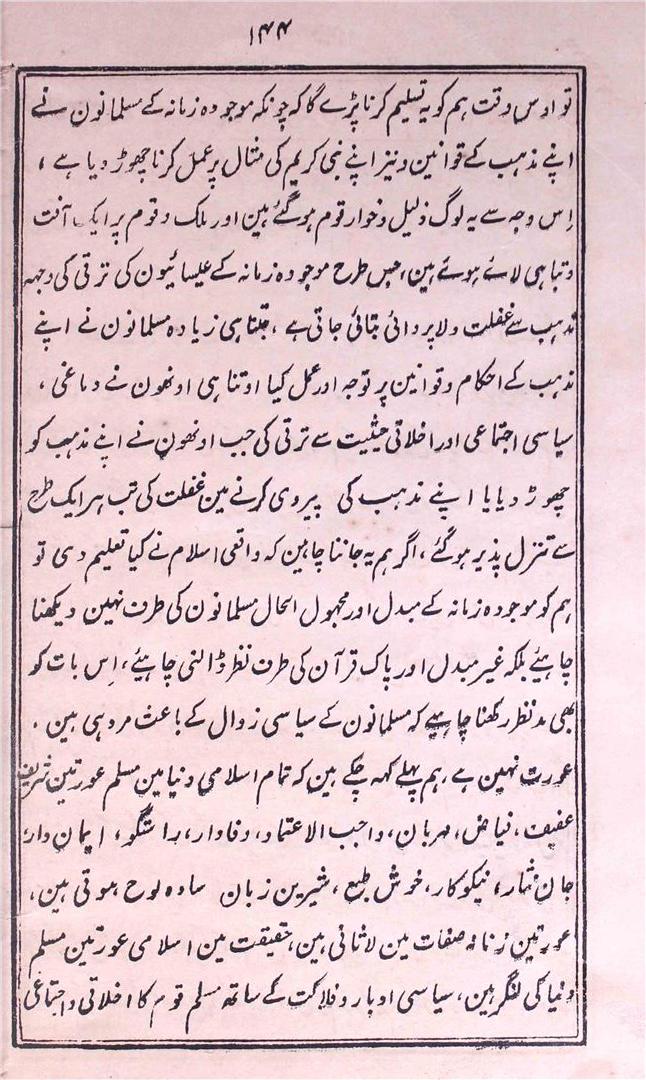 ۱۴۴
تو اوس وقت ہم کو یہ تسلیم کرنا پڑے گا کہ چونکہ موجودہ زمانہ کے مسلمانون نے
اپنے مذہب کے قوانین و نیز اپنے نبی کریم کی مثال پر عمل کرنا چھوڑ دیا ہے ،
اِس وجہ سے یہ لوگ ذلیل و خوار قوم ہو گئے ہین اور ملک و قوم پر ایک آفت
و تباہی لائے ہوئے ہین، جس طرح موجودہ زمانہ کے عیسائیون کی ترقی کی وجہہ
مذہب سے غفلت و لا پروائی بتائی جاتی ہے ، جتنا ہی زیادہ مسلمانون نے اپنے
مذہب کے احکام و قوانین پر توجہ اور عمل کیا اوتنا ہی اونھون نے دماغی ،
سیاسی اجتماعی اور اخلاقی حیثیت سے ترقی کی جب اونھون نے اپنے مذہب کو
چھوڑ دیا یا اپنے مذہب کی پیروی کرنے مین غفلت کی تب ہر ایک طرح
سے تنزل پذیر ہو گئے ، اگر ہم یہ جاننا چاہین کہ واقعی اسلام نے کیا تعلیم دی تو
ہم کو موجودہ زمانہ کے مبدل اور مجہول الحال مسلمانون کی طرف نہین دیکھنا
چاہیئے بلکہ غیر مبدل اور پاک قرآن کی طرف نظر ڈالنی چاہیئے ، اِس بات کو
بھی مدنظر رکھنا چاہیے کہ مسلمانون کے سیاسی زوال کے باعث مرد ہی ہین ۔
عورت نہین ہے ، ہم پہلے کہہ چکے ہین کہ تمام اسلامی دنیا مین مسلم عورتین شریف
عفیف ، فیاض ، مہربان ، واجب الاعتماد ، وفادار ، راستگو ، ایمان دار ،
جان نثار ، نیکوکار ، خوش طبع ، شیرین زبان سادہ لوح ہوتی ہین ،
عورتین زنانہ صفات مین لاثانی ہین ، حقیقت مین اسلامی عورتین مسلم
دنیا کی لنگر ہین ، سیاسی ادبار و فلاکت کے ساتھ مسلم قوم کا اخلاقی و اجتماعی